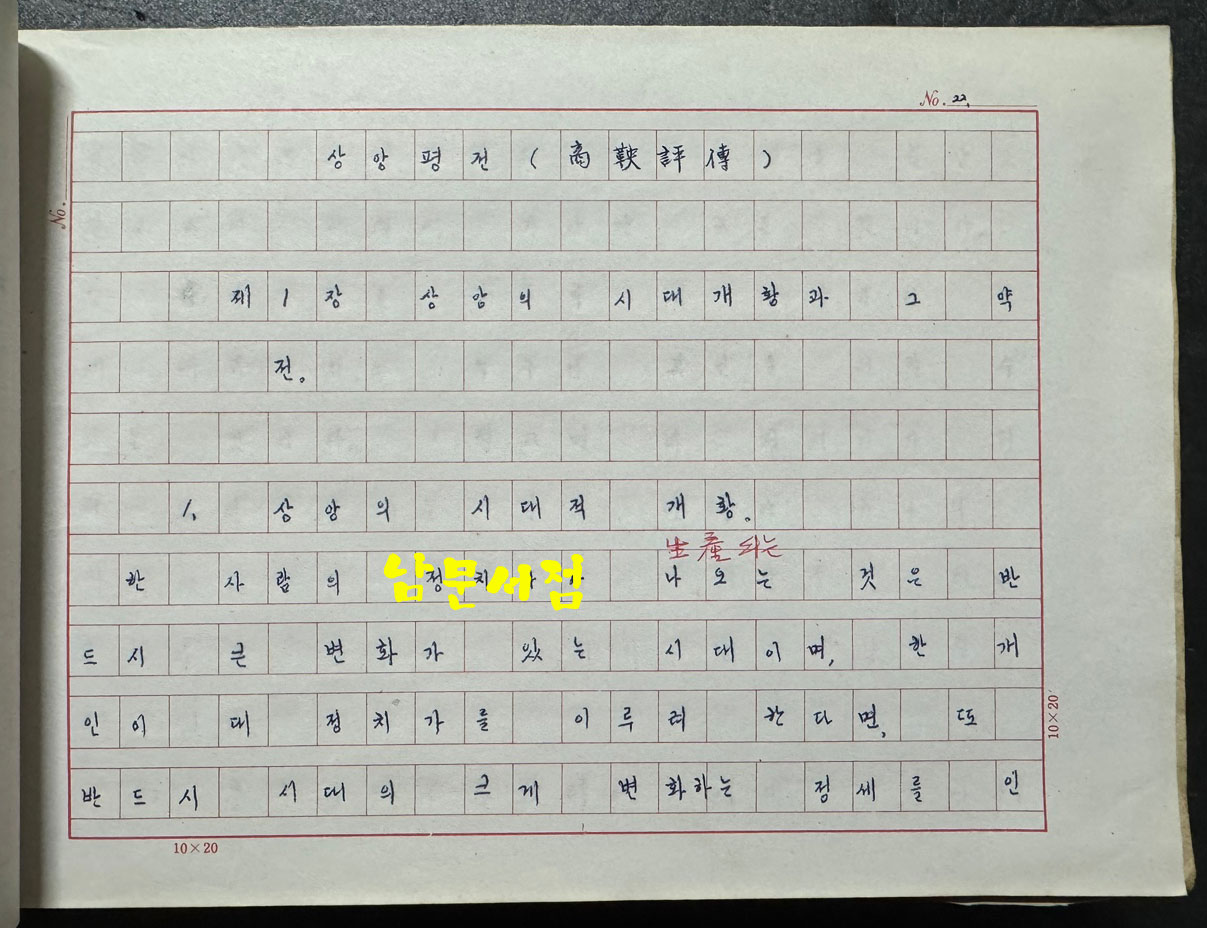 No. 22.
No.
상앙평전(商鞅評傳)
제1장 상앙의 시대개황과 그 약
전。
1. 상앙의 시대적 개황。
生産되는
한 사람의 정치 나오는 것은 반
남문서점
드시 큰 변화가 있는 시대이며, 한 개
인이 대 정치가를 이루려 한다면, 또
반드시 시대의 크게 변화하는 정세를 인
10×20
10×20